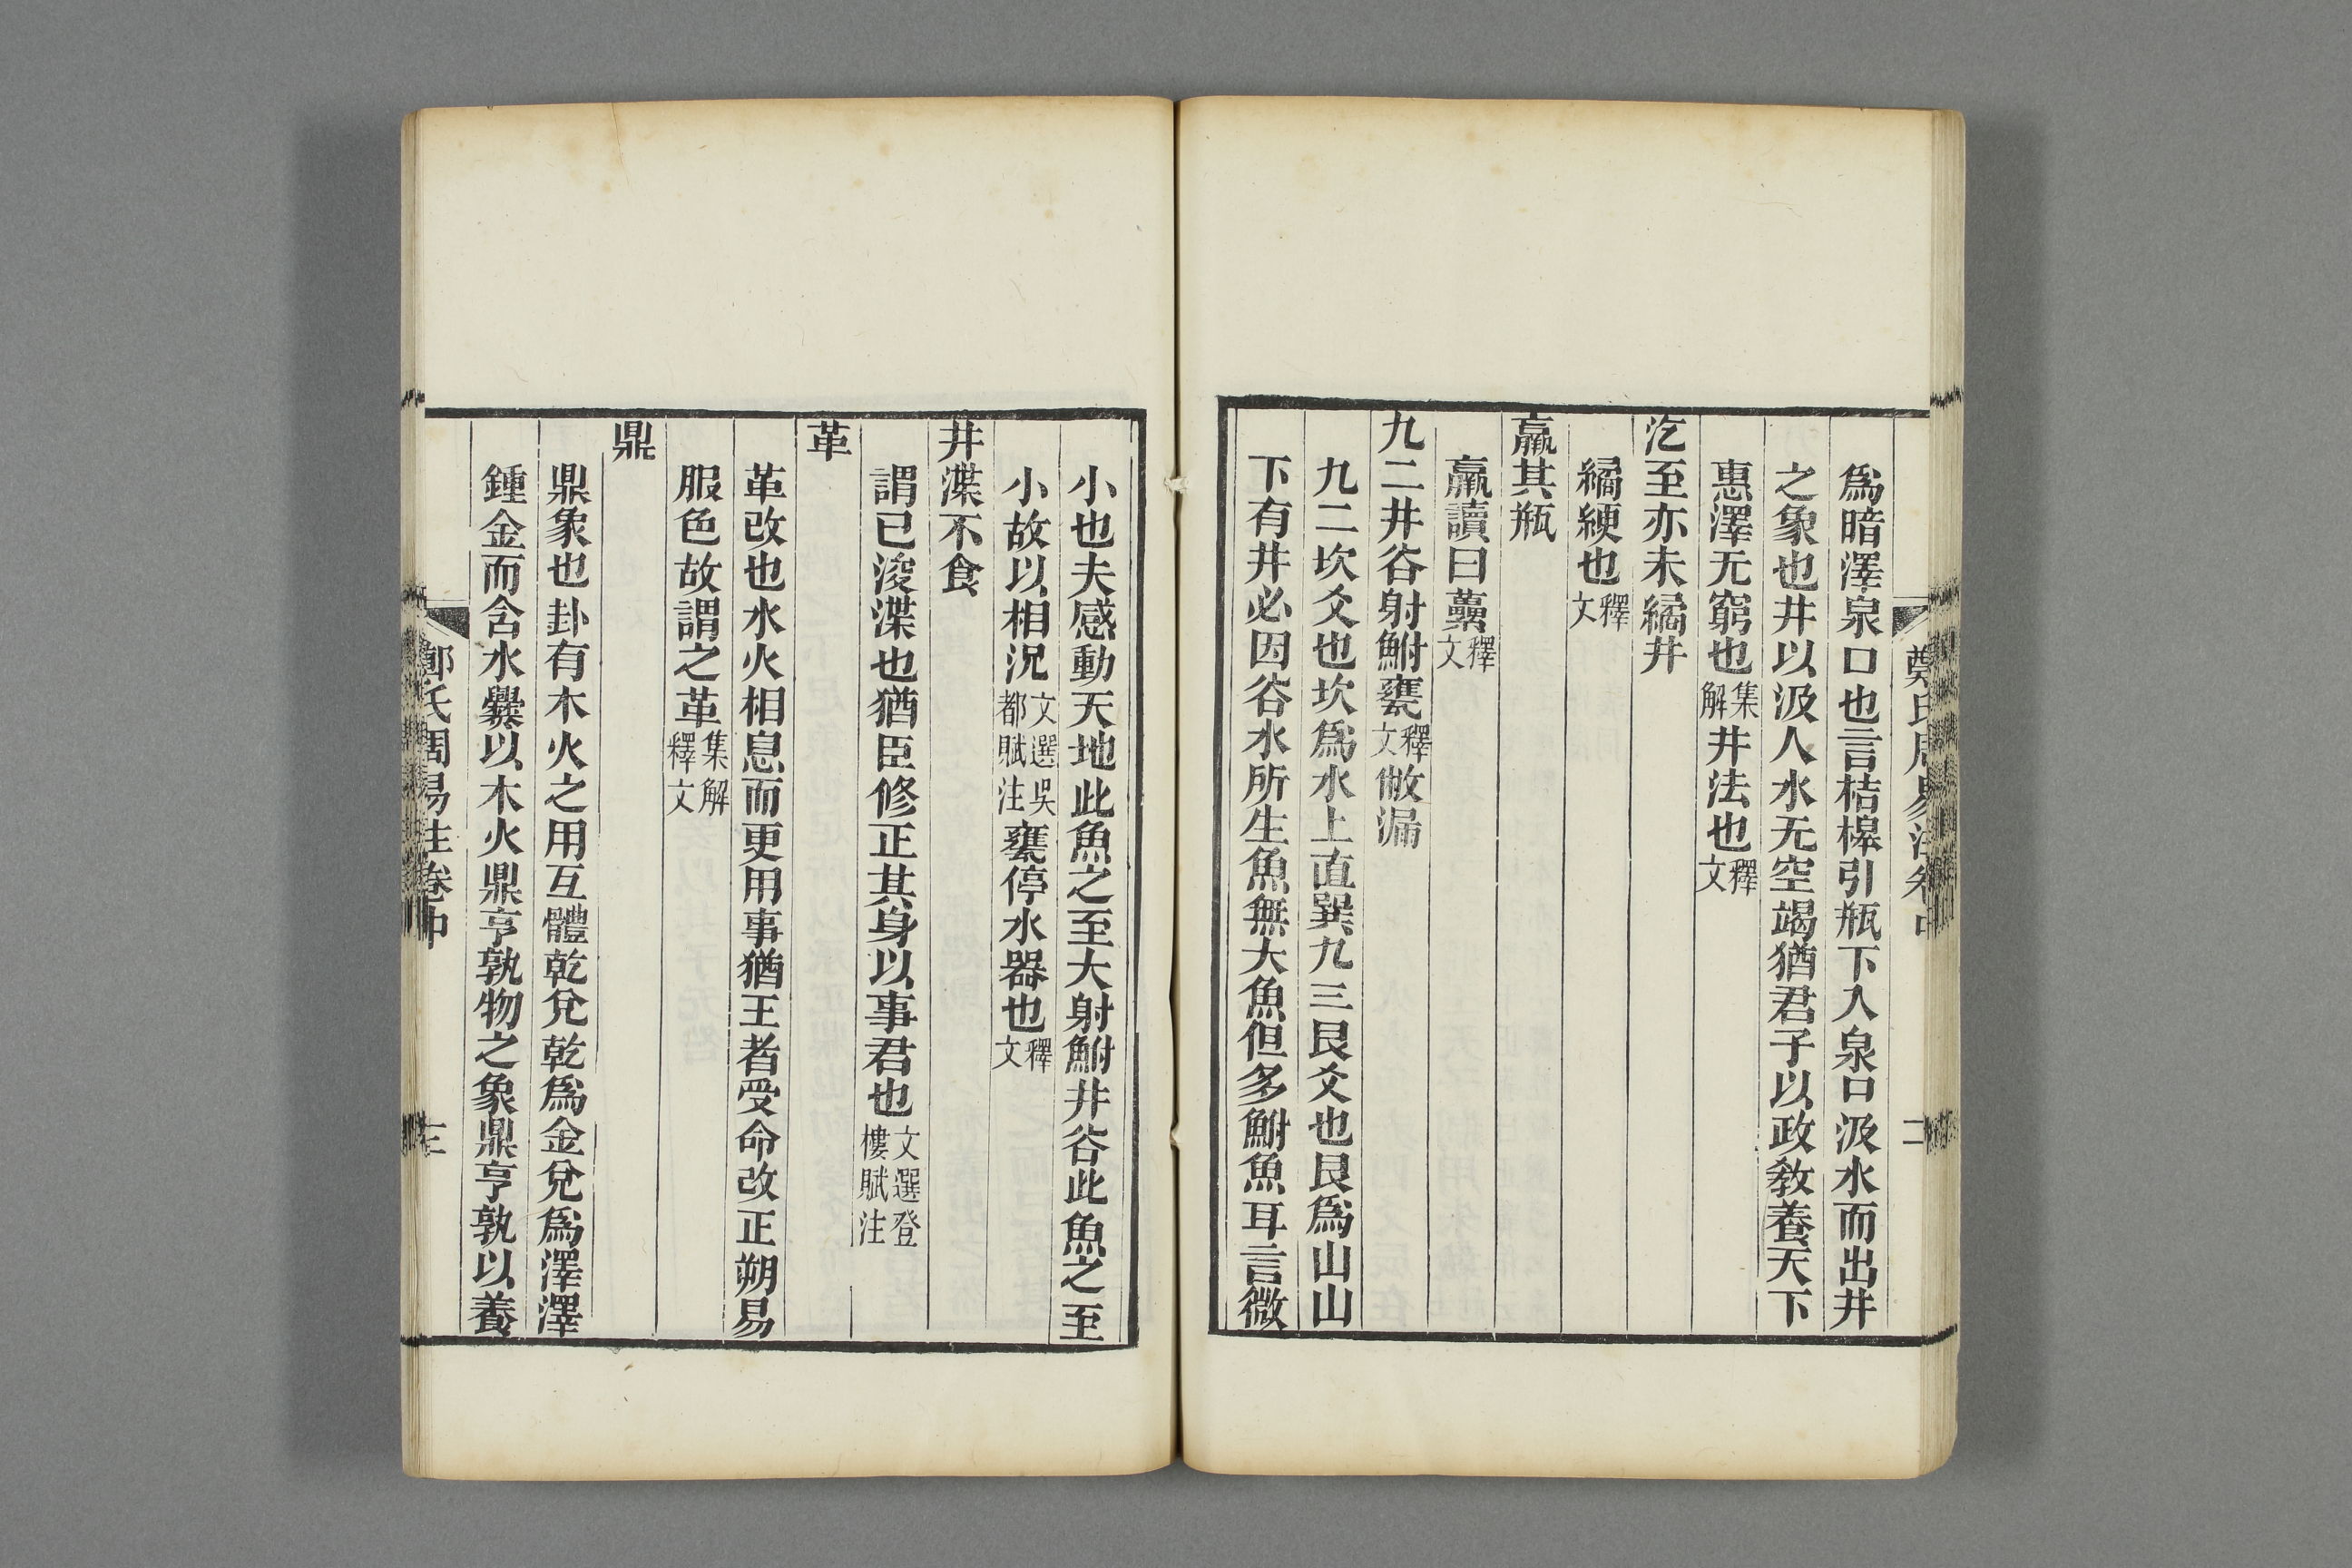 鄭氏周易注卷中
二
爲暗澤泉口也言桔槔引瓶下入泉口汲水而出井
之象也井以汲人水无空竭猶君子以政教養天下
惠澤无窮也集解井法也釋文
汔至亦未繘井
繘綆也釋文
羸其瓶
羸讀曰虆釋文
九二井谷射鮒甕釋文敝漏
九二坎爻也坎爲水上直巽九三艮爻也艮爲山山
下有井必因谷水所生魚無大魚但多鮒魚耳言微
小也夫感動天地此魚之至大射鮒井谷此魚之至
小故以相況文選吳都賦注甕停水器也釋文
井渫不食
謂已浚渫也猶臣修正其身以事君也文選登樓賦注
革
革改也水火相息而更用事猶王者受命改正朔易
服色故謂之革集解釋文
鼎
鼎象也卦有木火之用互體乾兌乾爲金兌爲澤澤
鍾金而含水爨以木火鼎亨孰物之象鼎亨孰以養
鄭氏周易注卷中
三